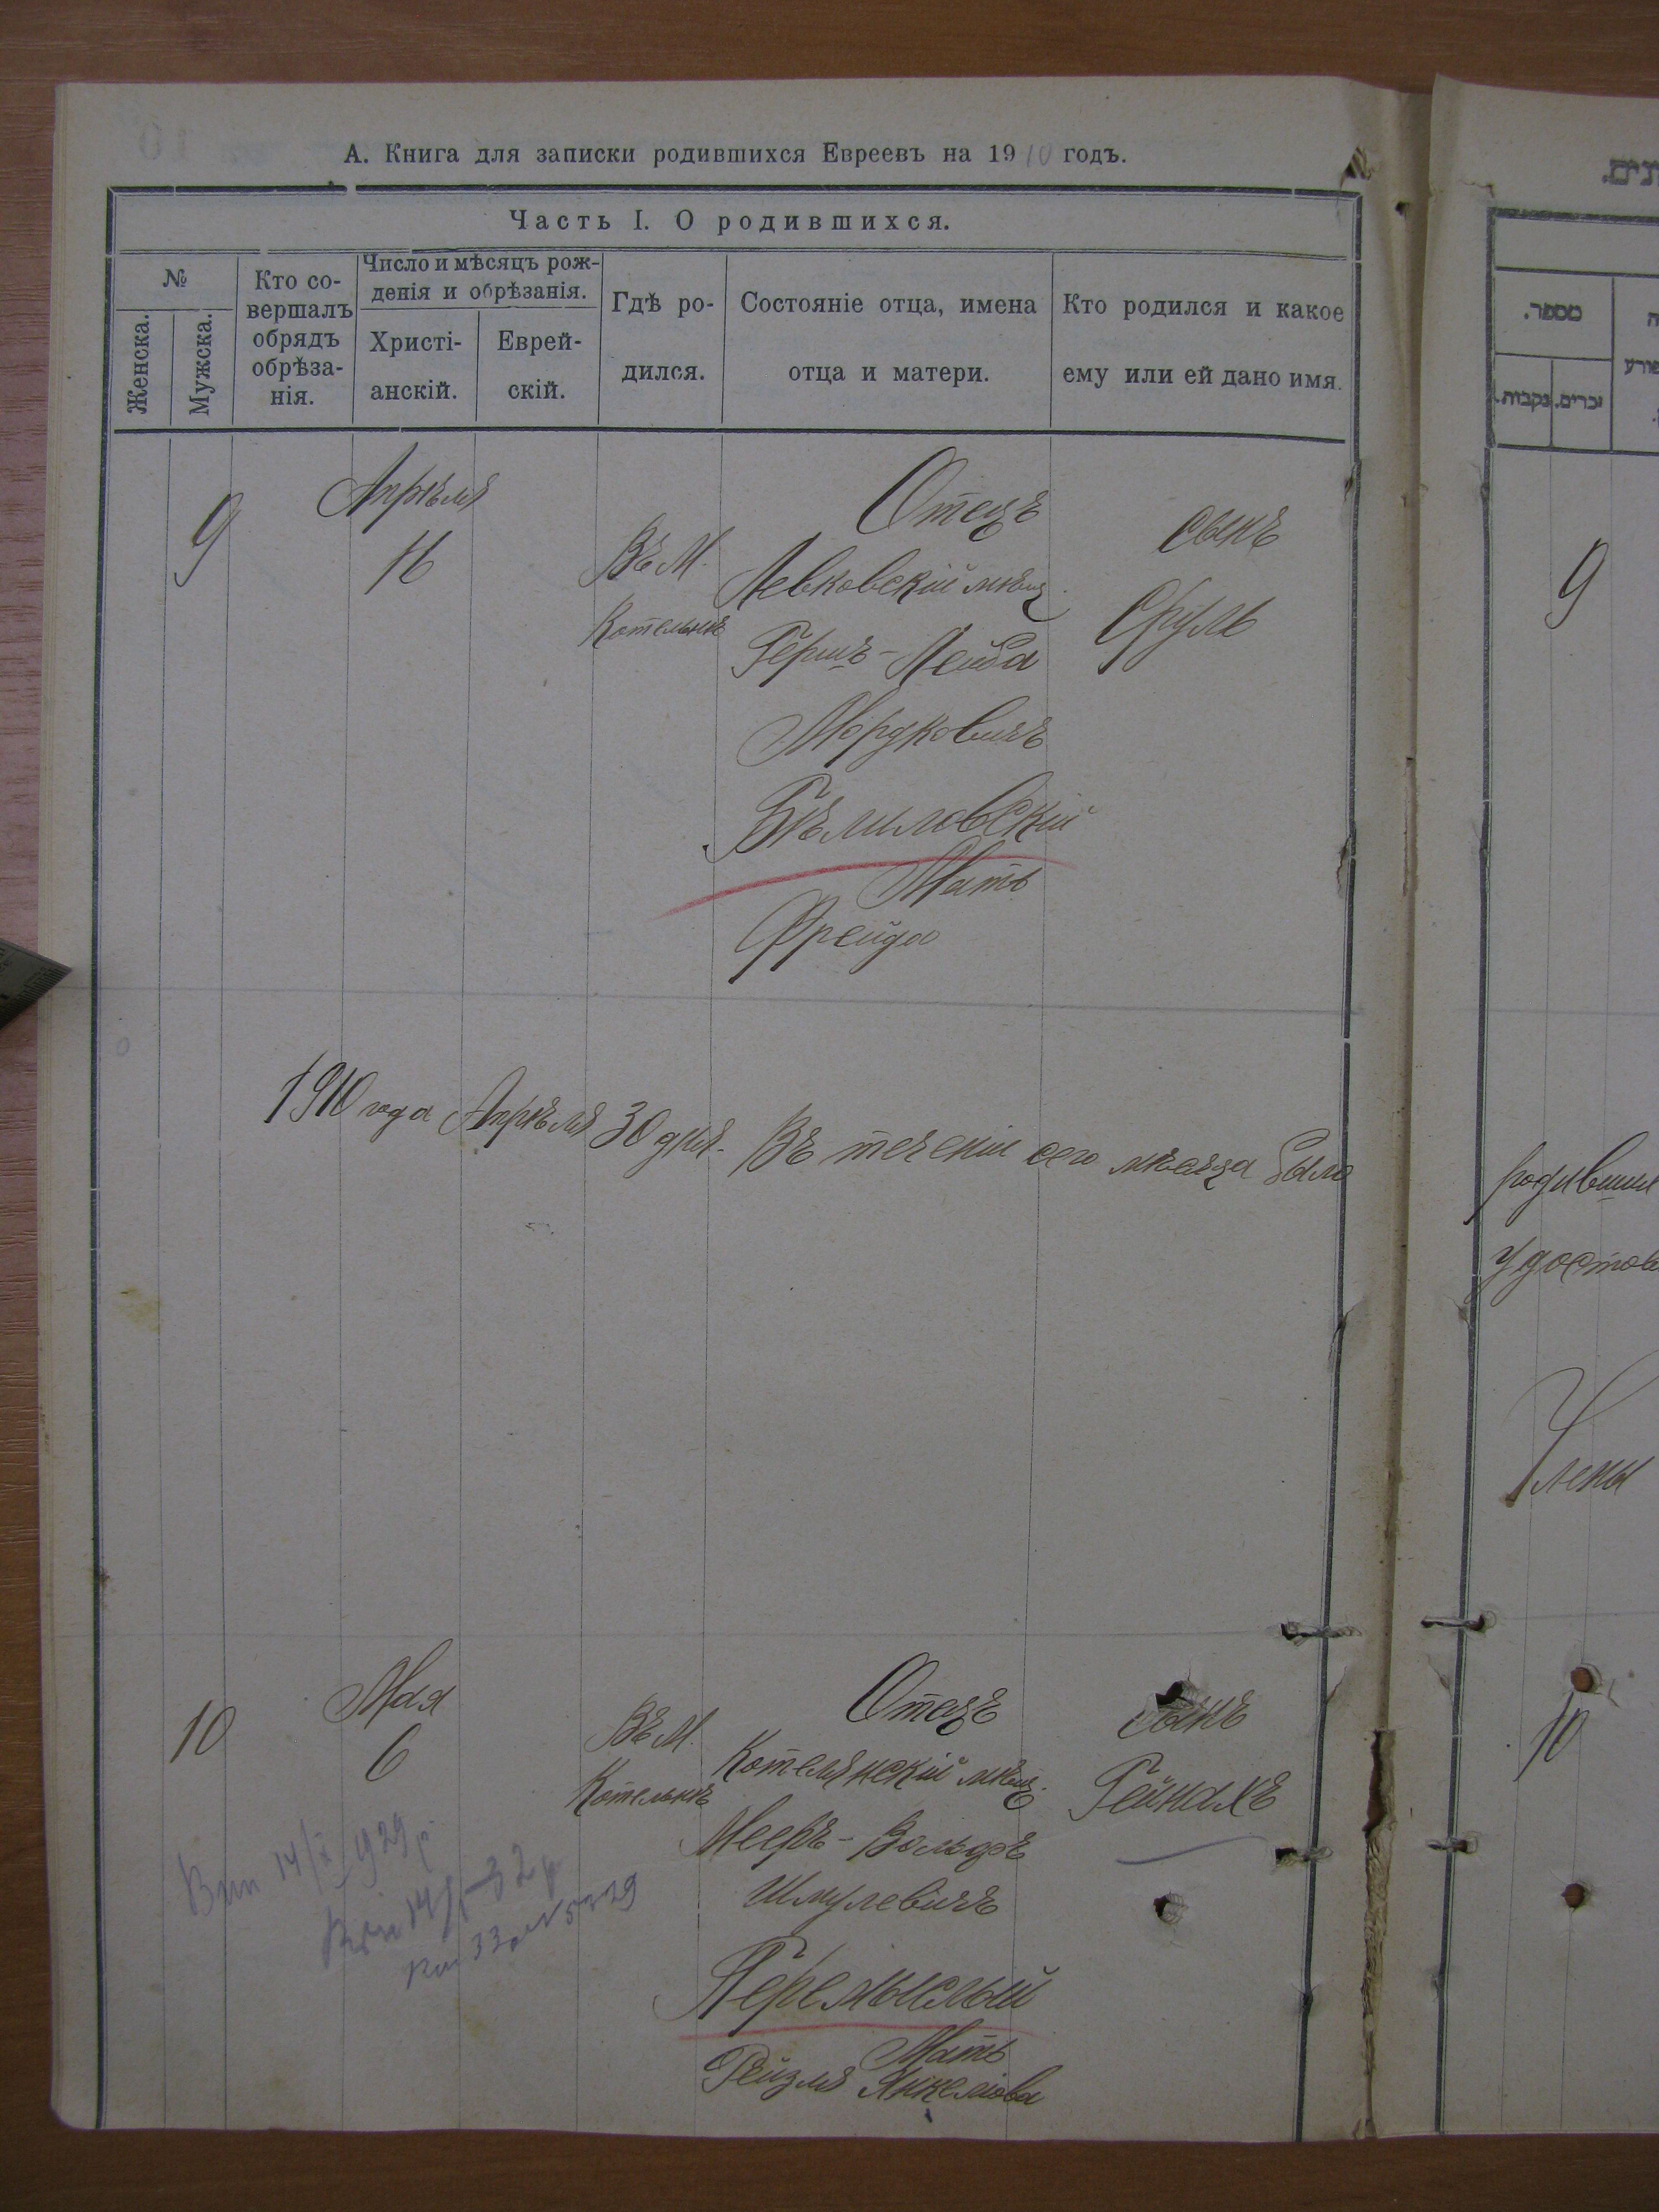 А. Книга для записки родившихся Евреевъ на 1910 годъ.
Часть I. О родившихся.
№
Женска.
Мужска.
Кто со-
вершалъ
обрядъ
обрѣза-
нія.
Число и мѣсяцъ рож-
денія и обрѣзанія.
Христі-
анскій.
Еврей-
скій.
Гдѣ ро-
дился.
Состояніе отца, имена
отца и матери.
Кто родился и какое
ему или ей дано имя.
9
Апрѣля
16
Въ М.
Котельнѣ
Отецъ
Левковскій мѣщ.
Гершъ-Лейба
Мордковичъ
Бѣлиловскій
Мать
Фрейда
сынъ
Сруль
1910 года Апрѣля 30 дня. Въ теченіи сего мѣсяца было
10
Мая
6
Въ М.
Котельнѣ
Отецъ
Котелянскій мѣщ.
Мееръ-Вольфъ
Шмулевичъ
Перемыслый
Мать
Рейзля Янкелiова
сынъ
Гейнахъ
14/X 1929 р
מספר.
נקבות.
זכרים.
9
родивших
удостов
Члены
10